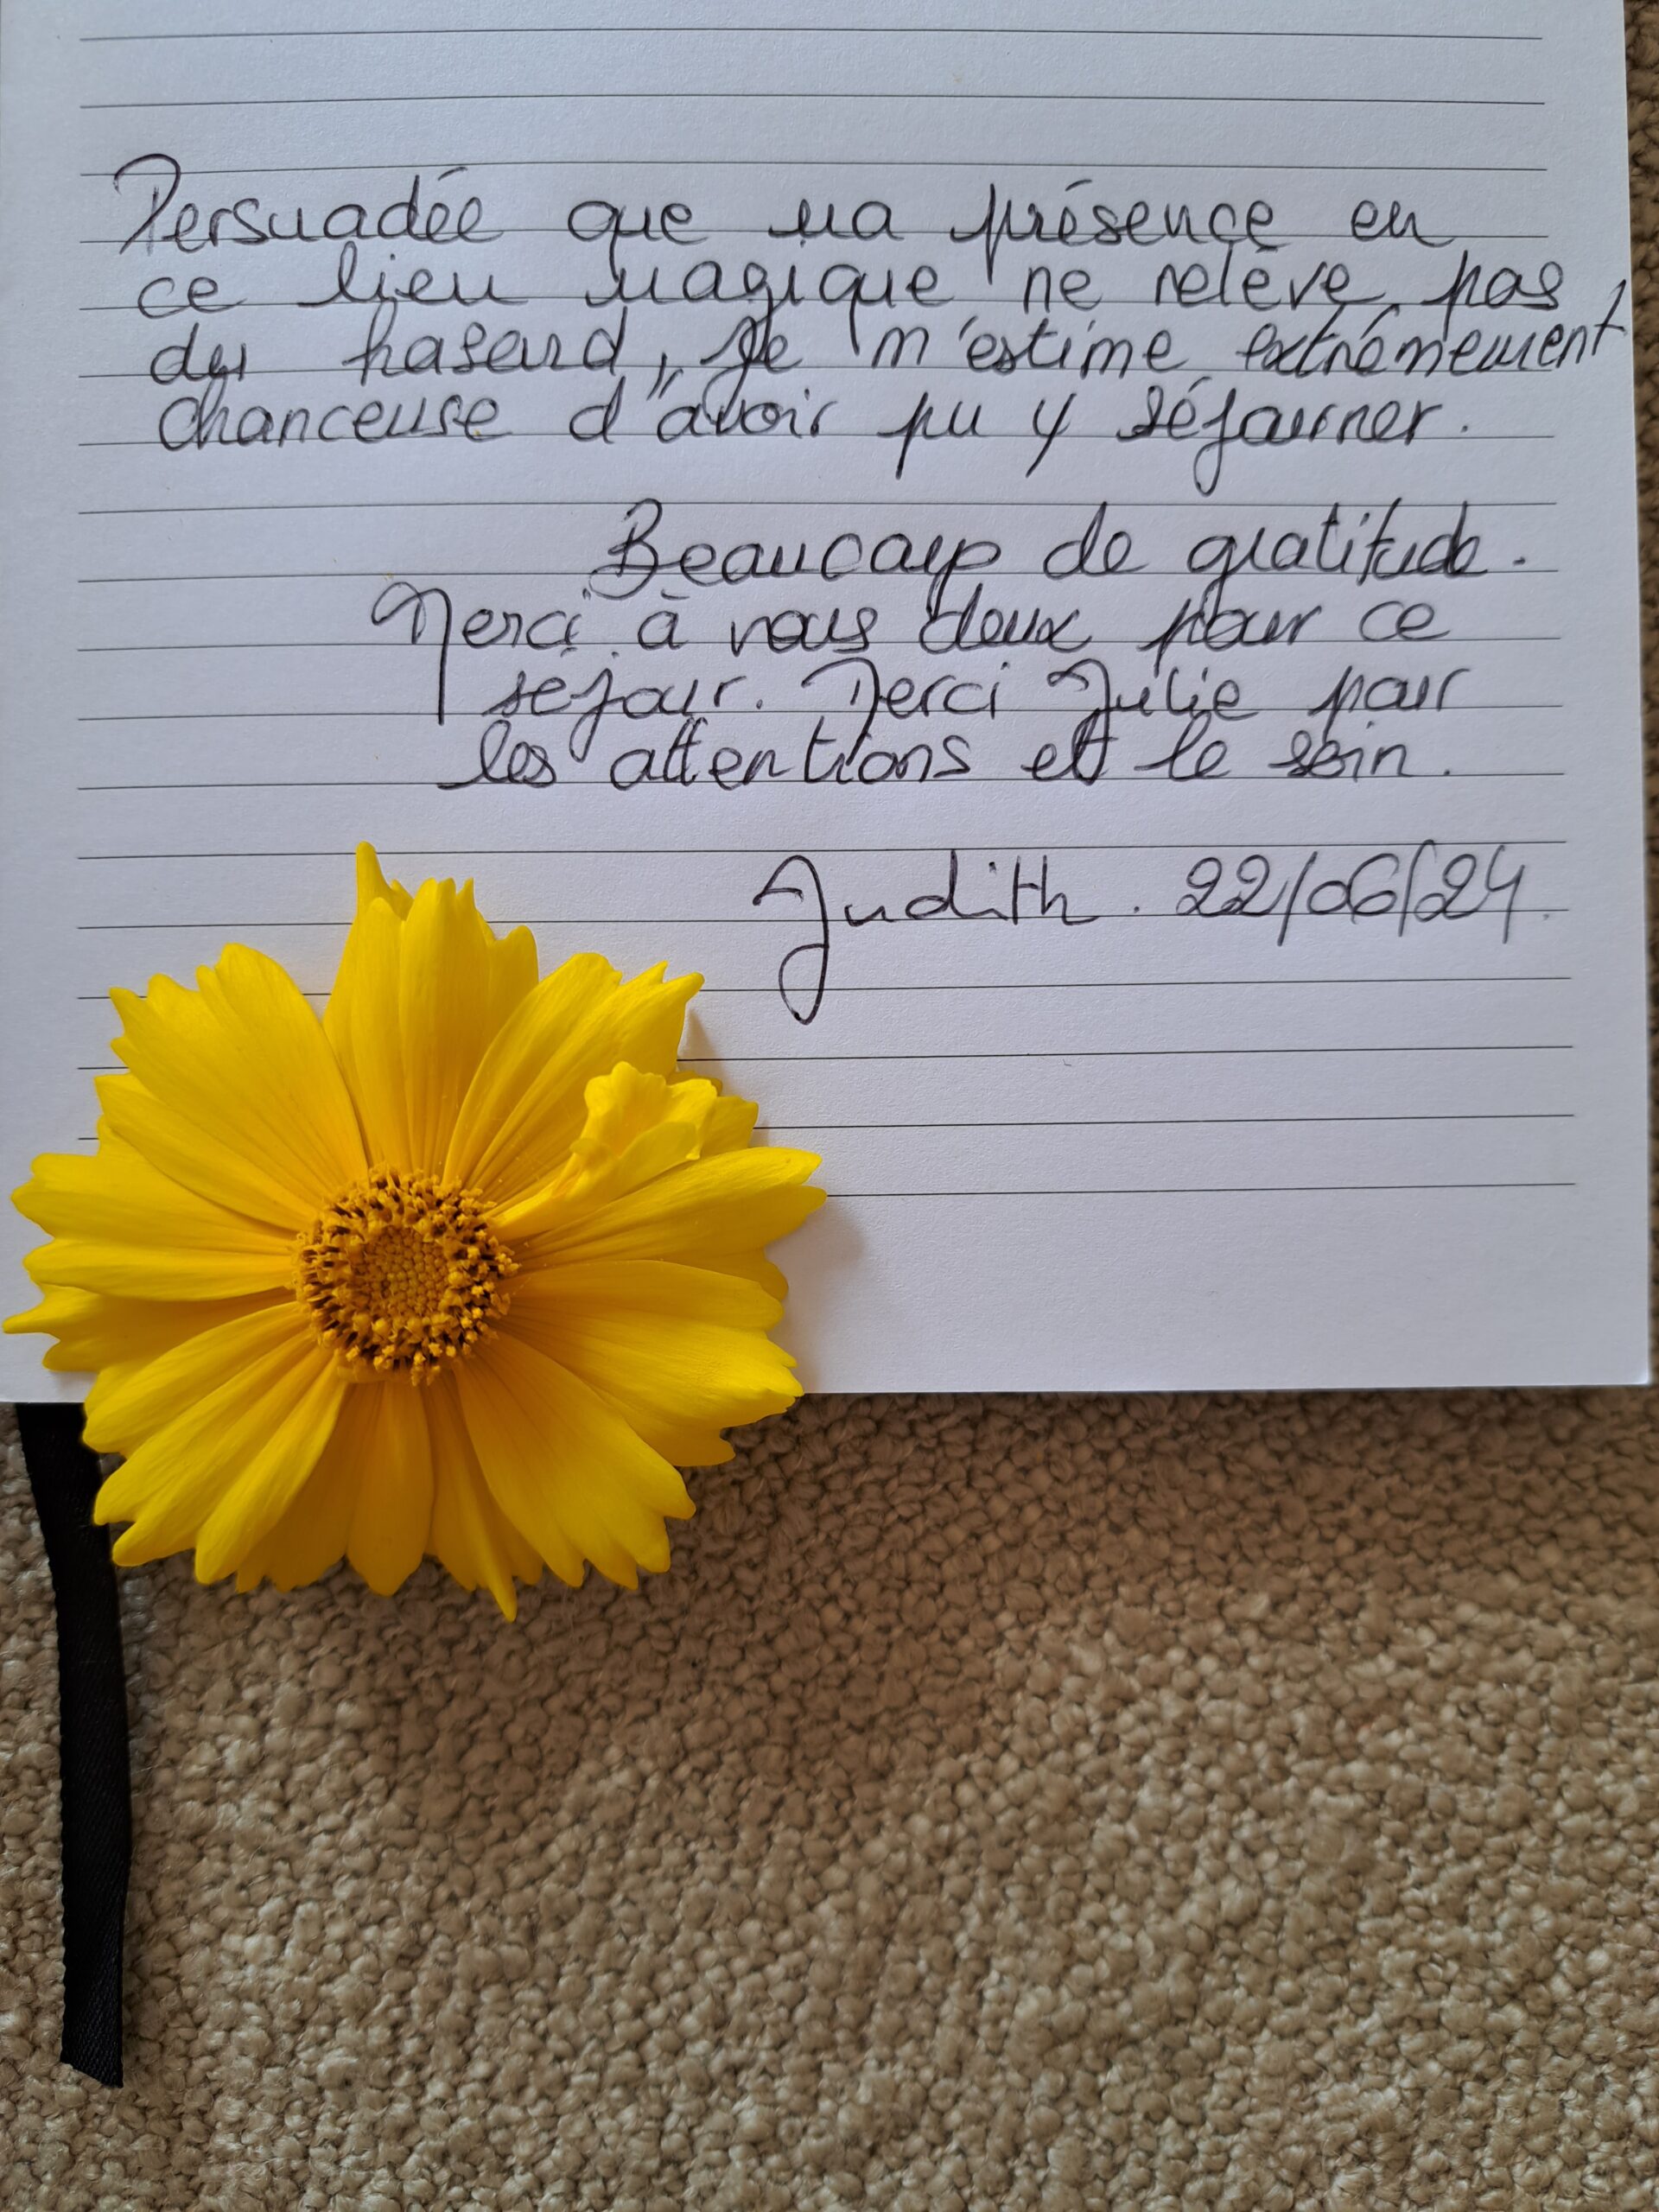 Persuadée que ma présence en
ce lieu magique ne relève pas
du hasard, je m'estime extrêmement
chanceuse d'avoir pu y séjourner.
Beaucoup de gratitude.
Merci à vous deux pour ce
séjour. Merci Julie pour
les attentions et le soin.
Judith. 22/06/24.